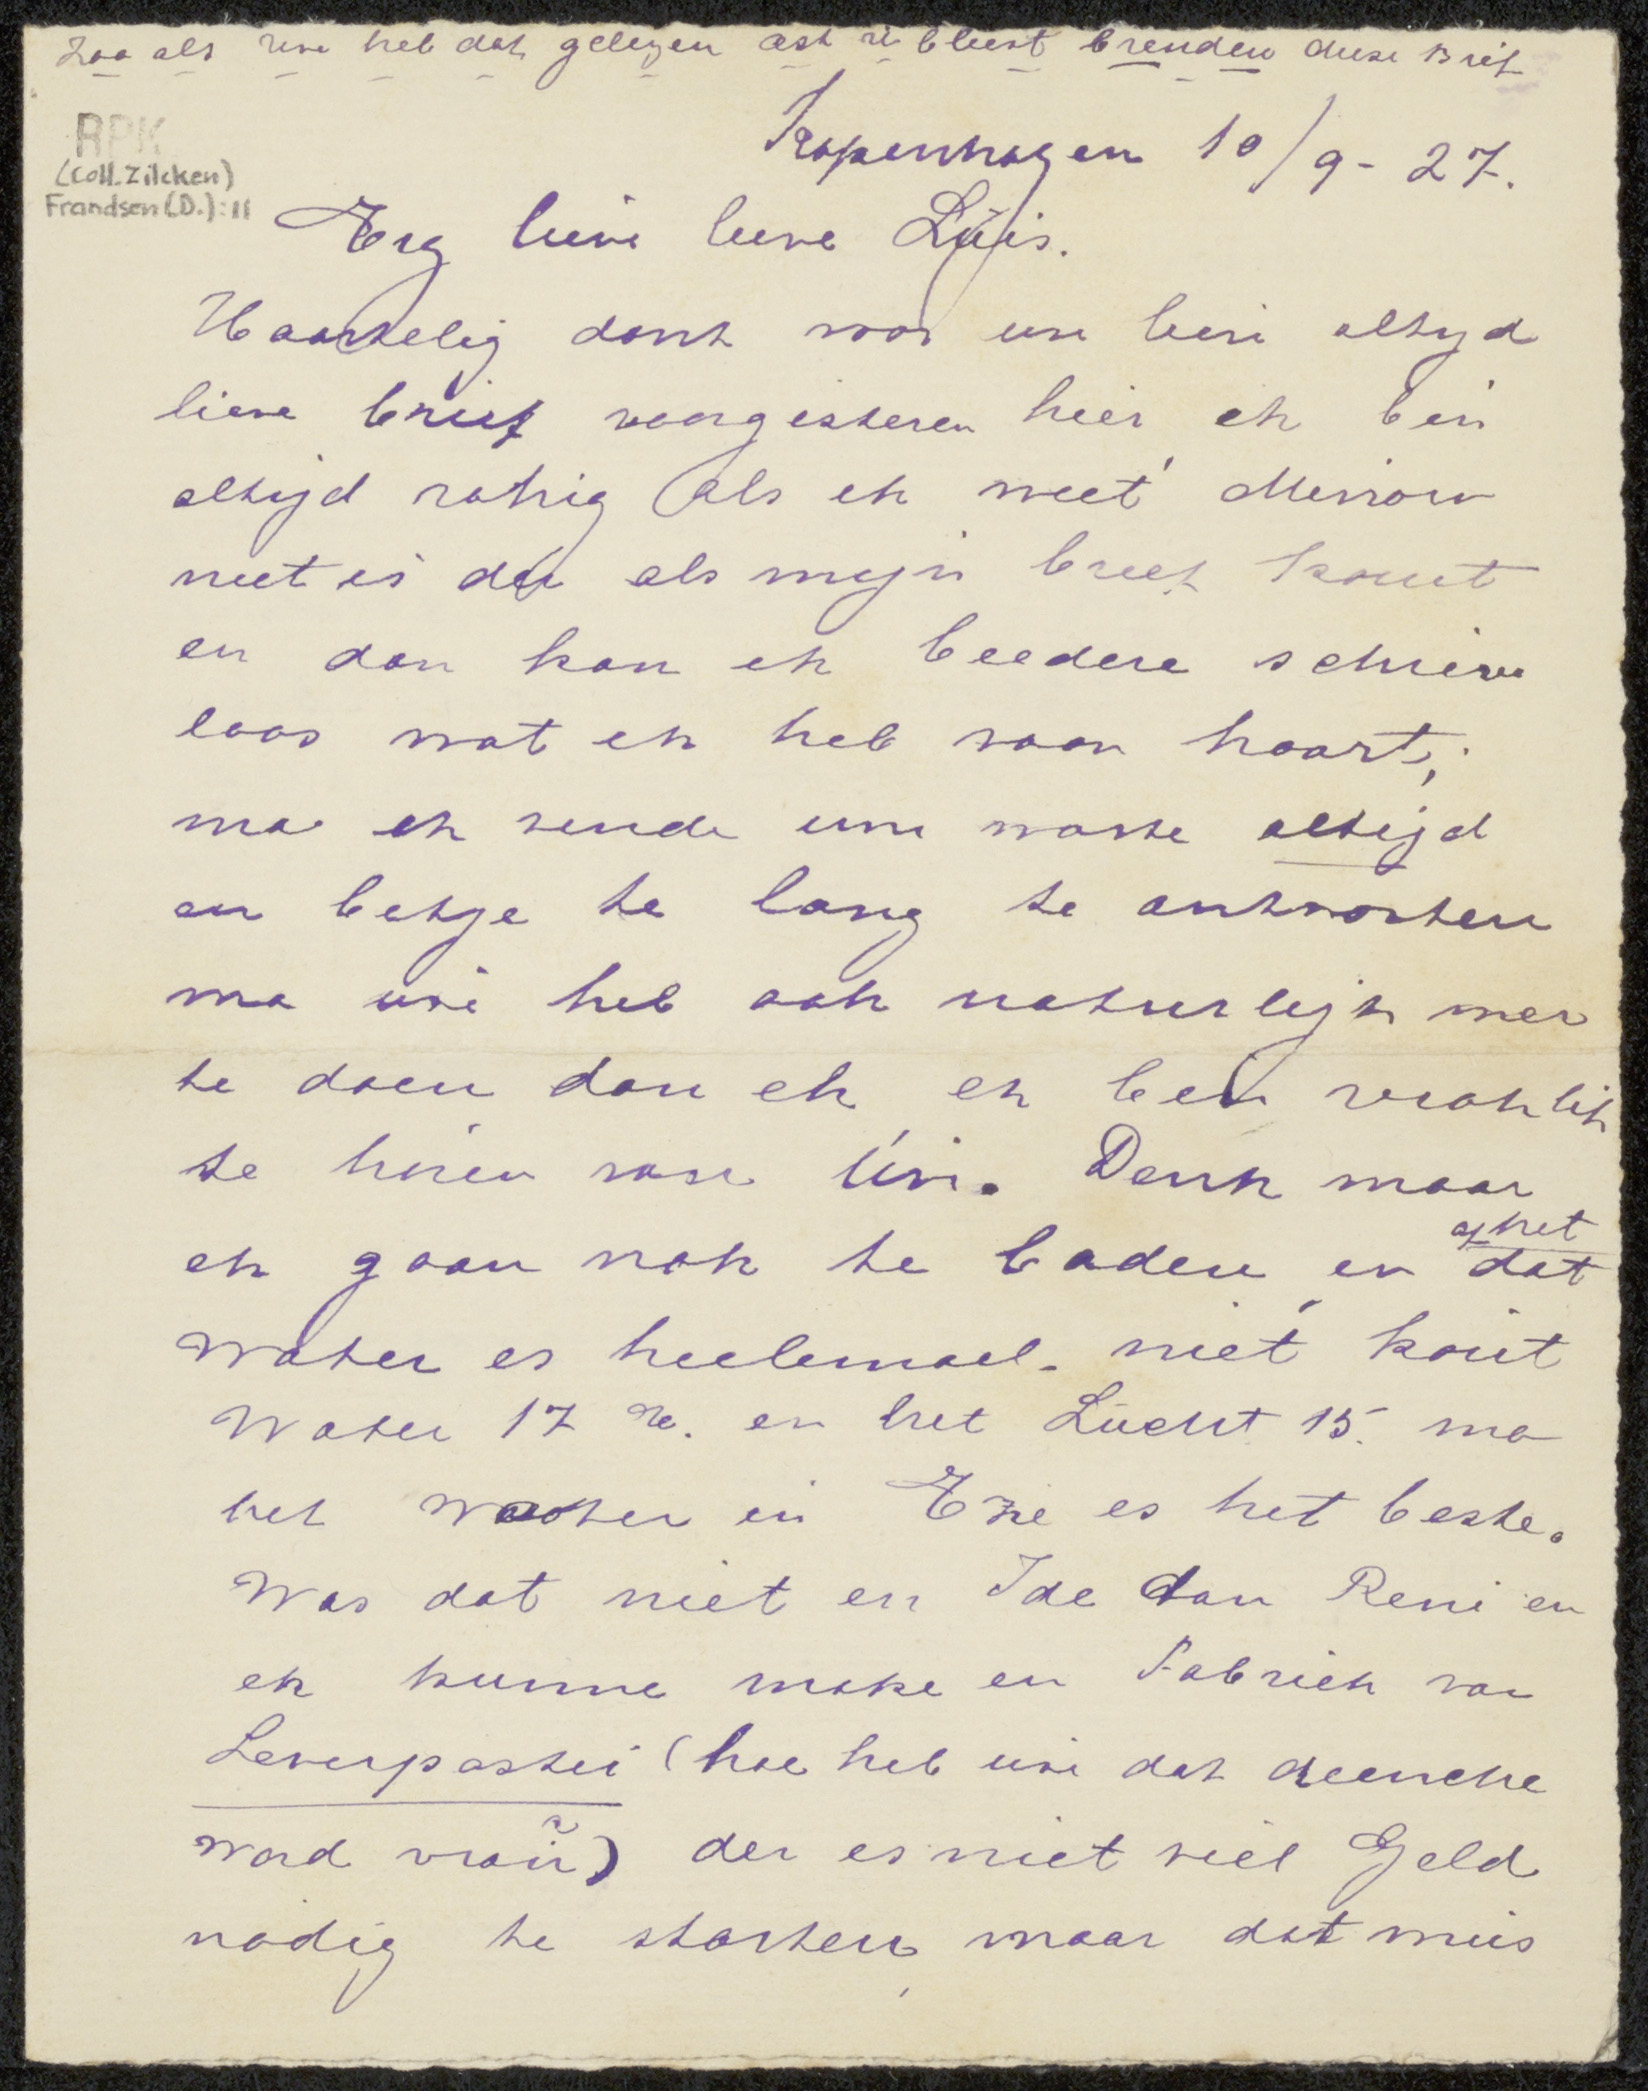 Zoo als uwe heb dat gelezen ask u bleest brenden deese Brif
Kopenhagen 10/9-27.
RPK
(Coll. Zilcken)
Frandsen (D.): 11
Erg lieve lieve Luis.
Haartelig dank voor uw leve altyd
lieve brief voorgisteren hier, ek bin
altijd rohig als ek weet Mevrow
neet is der als mijn breef komt
en dan kan ek beedere schrieve
laas wat ek heb vaan haart,
ma ek vende uwe waste altijd
en betje te lang te antworten
ma uwe heb ook naturlijk mer
te doen dan ek, ek ben vrohlik
te hören van Uwe. Denk maar
ek gaan nok te baden en dat
of het
Water es heelemael niet kout
Water 17 Gr. en het Lucht 15. ma
het Water in Eze es het beste.
Was dat niet en Ide dan Reni en
ek kunne make en Fabriek van
Leverpostei (hoe heb uwe dat deensche
word vrom) der es niet viel Geld
nodig te starten, maar dat mus